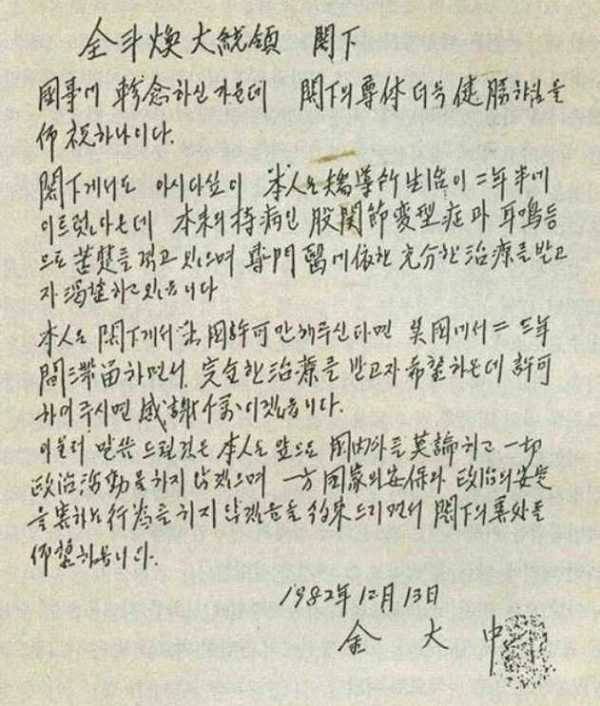 全斗煥大統領 閣下
國事에 軫念하신 가운데 閣下의 尊体 더욱 健勝하심을
仰祝하나이다.
閣下께서도 아시다싶이 本人은 矯導所 生活이 二年半에
이르렀아온데 本來의 持病인 股關節 変型症과 耳鳴 등
으로 苦楚를 겪고 있으며 專門醫에 依한 充分한 治療를 받고
자 渴望하고 있읍니다
本人은 閣下께서 出國許可만 해주신다면 美國에서 二, 三年
間 滯留하면서 完全한 治療를 받고자 希望하온데 許可
하여 주시면 感謝千萬이겠읍니다.
아울러 말씀 드릴 것은 本人은 앞으로 國內外를 莫論하고 一切
政治活動을 하지 않겠으며 一方 国家의 安保와 政治의 安定
을 害하는 行為를 하지 않겠음을 約束드리면서 閣下의 善処를
仰望하옵니다.
1982年 12月 13日
金 大 中